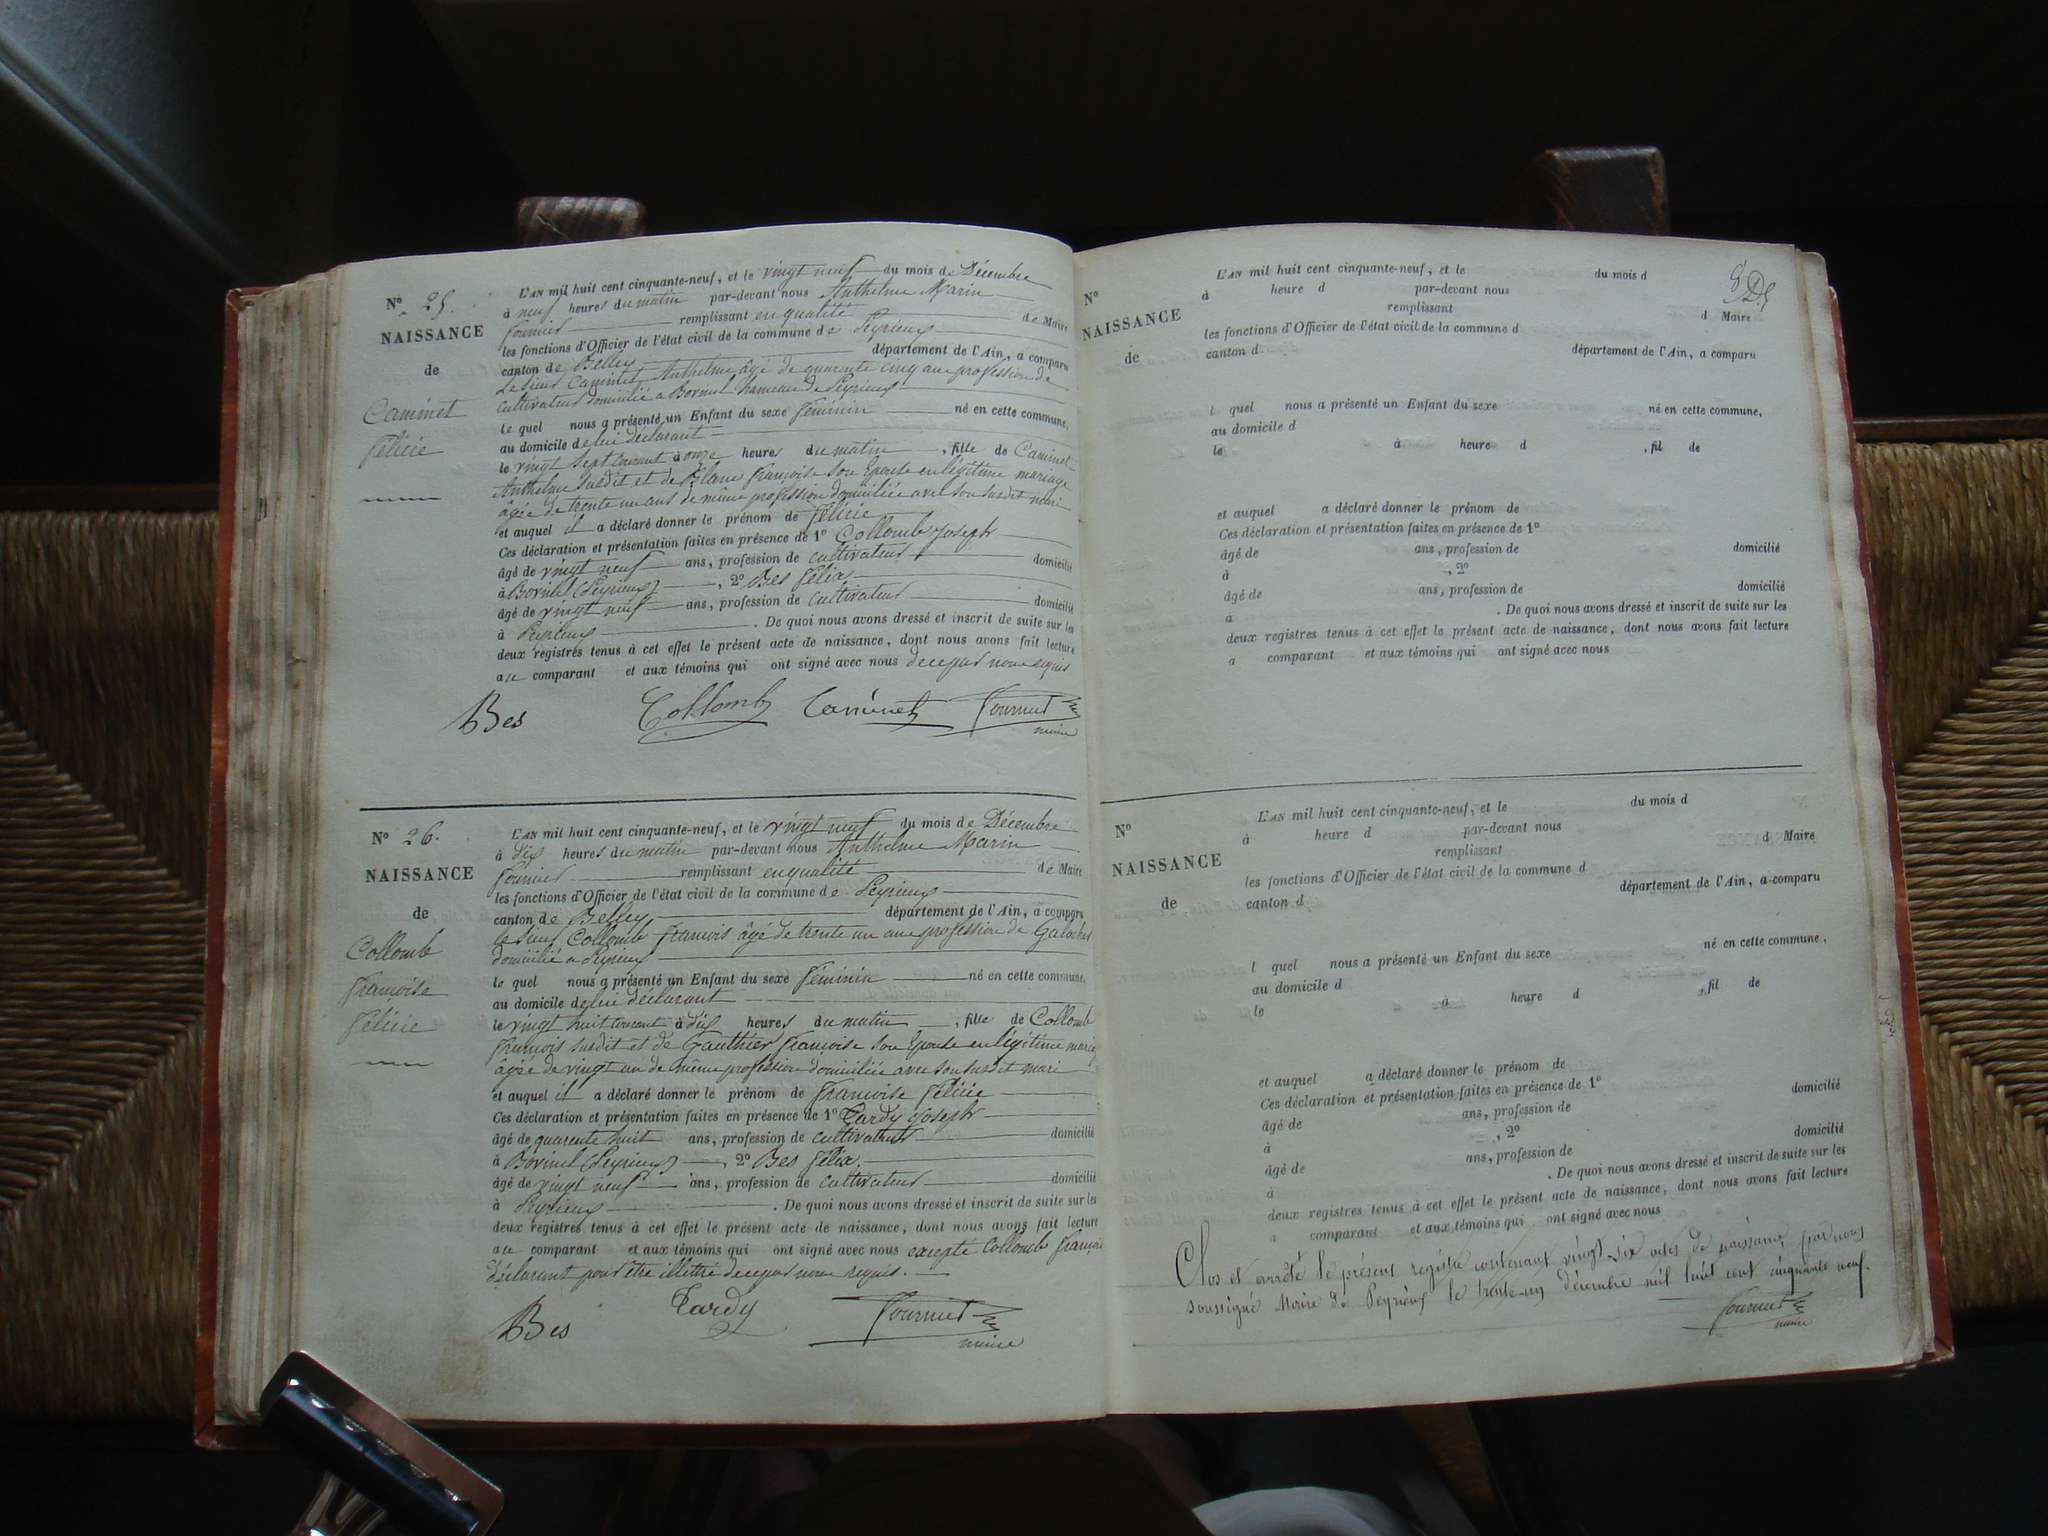 N° 25.
NAISSANCE
de
Caminet
Félicie
L'AN mil huit cent cinquante-neuf, et le vingt neuf du mois de Décembre
à neuf heures du matin par-devant nous Anthelme Marin
Fournier remplissant en qualité de Maire
les fonctions d'Officier de l'état civil de la commune de Peyrieux
canton de Belley département de l'Ain, a comparu
Le sieur Caminet Anthelme âgé de quarante cinq ans profession de
cultivateur domicilié à Bovinel hameau de Peyrieux
le quel nous a présenté un Enfant du sexe féminin né en cette commune,
au domicile de lui déclarant
le vingt sept courant à onze heures du matin, fille de Caminet
Anthelme susdit et de Blanc françoise son Epouse en légitime mariage
âgée de trente un ans de même profession domiciliée avec son susdit mari
et auquel il a déclaré donner le prénom de Félicie
Ces déclaration et présentation faites en présence de 1° Collomb Joseph
âgé de vingt neuf ans, profession de cultivateur domicilié
à Bovinel (Peyrieux), 2° Bes Félix
âgé de vingt neuf ans, profession de cultivateur domicilié
à Peyrieux. De quoi nous avons dressé et inscrit de suite sur les
deux registres tenus à cet effet le présent acte de naissance, dont nous avons fait lecture
au comparant et aux témoins qui ont signé avec nous de ce par nous requis
Bes Collomb Caminet Fournier
maire
N° 26.
NAISSANCE
de
Collomb
Françoise
Félicie
L'AN mil huit cent cinquante-neuf, et le vingt neuf du mois de Décembre
à dix heures du matin par-devant nous Anthelme Marin
Fournier remplissant en qualité de Maire
les fonctions d'Officier de l'état civil de la commune de Peyrieux
canton de Belley département de l'Ain, a comparu
le sieur Collomb françois âgé de trente un ans profession de
domicilié à Peyrieux
le quel nous a présenté un Enfant du sexe féminin né en cette commune,
au domicile de lui déclarant
le vingt huit courant à dix heures du matin, fille de Collomb
françois susdit et de Gauthier françoise son Epouse en légitime mariage
âgée de vingt un de même profession domiciliée avec son susdit mari
et auquel il a déclaré donner le prénom de Françoise Félicie
Ces déclaration et présentation faites en présence de 1° Tardy Joseph
âgé de quarente huit ans, profession de cultivateur domicilié
à Bovinel (Peyrieux), 2° Bes Félix.
âgé de vingt neuf ans, profession de cultivateur domicilié
à Peyrieux. De quoi nous avons dressé et inscrit de suite sur les
deux registres tenus à cet effet le présent acte de naissance, dont nous avons fait lecture
au comparant et aux témoins qui ont signé avec nous excepté Collomb françois
déclarant pour être illettré de ce par nous requis.
Bes Tardy Fournier
maire
N°
NAISSANCE
de
L'AN mil huit cent cinquante-neuf, et le du mois d
à heure d par-devant nous
remplissant d Maire
les fonctions d'Officier de l'état civil de la commune d
canton d département de l'Ain, a comparu
l quel nous a présenté un Enfant du sexe né en cette commune,
au domicile d
le à heure d , fil de
et auquel a déclaré donner le prénom de
Ces déclaration et présentation faites en présence de 1°
âgé de ans, profession de domicilié
à , 2°
âgé de ans, profession de domicilié
à . De quoi nous avons dressé et inscrit de suite sur les
deux registres tenus à cet effet le présent acte de naissance, dont nous avons fait lecture
a comparant et aux témoins qui ont signé avec nous
N°
NAISSANCE
de
L'AN mil huit cent cinquante-neuf, et le du mois d
à heure d par-devant nous
remplissant d Maire
les fonctions d'Officier de l'état civil de la commune d
canton d département de l'Ain, a comparu
l quel nous a présenté un Enfant du sexe né en cette commune,
au domicile d
le à heure d , fil de
et auquel a déclaré donner le prénom de
Ces déclaration et présentation faites en présence de 1°
âgé de ans, profession de domicilié
à , 2°
âgé de ans, profession de domicilié
à . De quoi nous avons dressé et inscrit de suite sur les
deux registres tenus à cet effet le présent acte de naissance, dont nous avons fait lecture
a comparant et aux témoins qui ont signé avec nous
Clos et arrêté le présent registre contenant vingt-six actes de naissance, par nous
soussigné Maire de Peyrieux le trente-un décembre mil huit cent cinquante neuf.
Fournier
maire